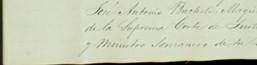 José Antonio Bucheli, Magis
de la Suprema Corte de Justi
y Ministro Semanero de la